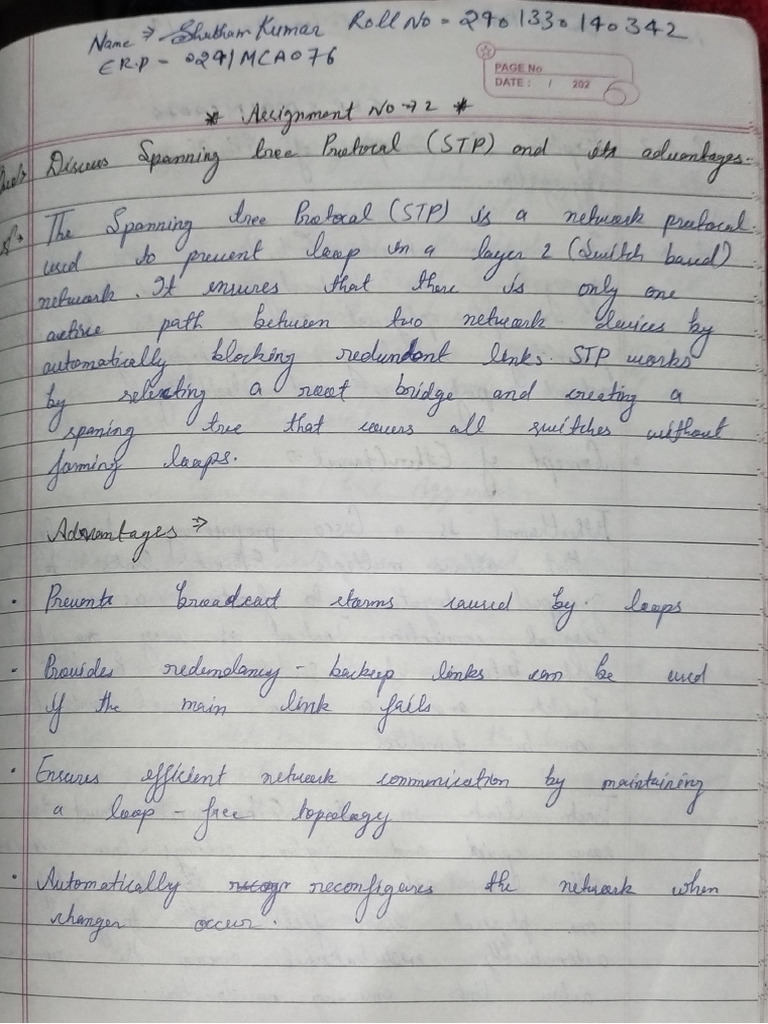 Name ⇒ Shubham Kumar Roll No - 2901330140342
E.R.P - 0241MCA076
PAGE No
DATE : / 202
* Assignment No → 2 *
Discuss Spanning tree Protocal (STP) and its advantages.
The Spanning tree Protocal (STP) is a network protocal
used to prevent loop in a layer 2 (Switch based)
network. It ensures that there is only one
active path between two network devices by
automatically blocking redundant links. STP works
by selecting a root bridge and creating a
spaning tree that covers all switches without
forming loops.
Advantages ⇒
• Prevents broadcast storms caused by loops
• Provides redendancy - backup links can be used
If the main link fails
• Ensures efficient network communication by maintaining
a loop - free topology
• Automatically reconfigures the network when
changes occur.